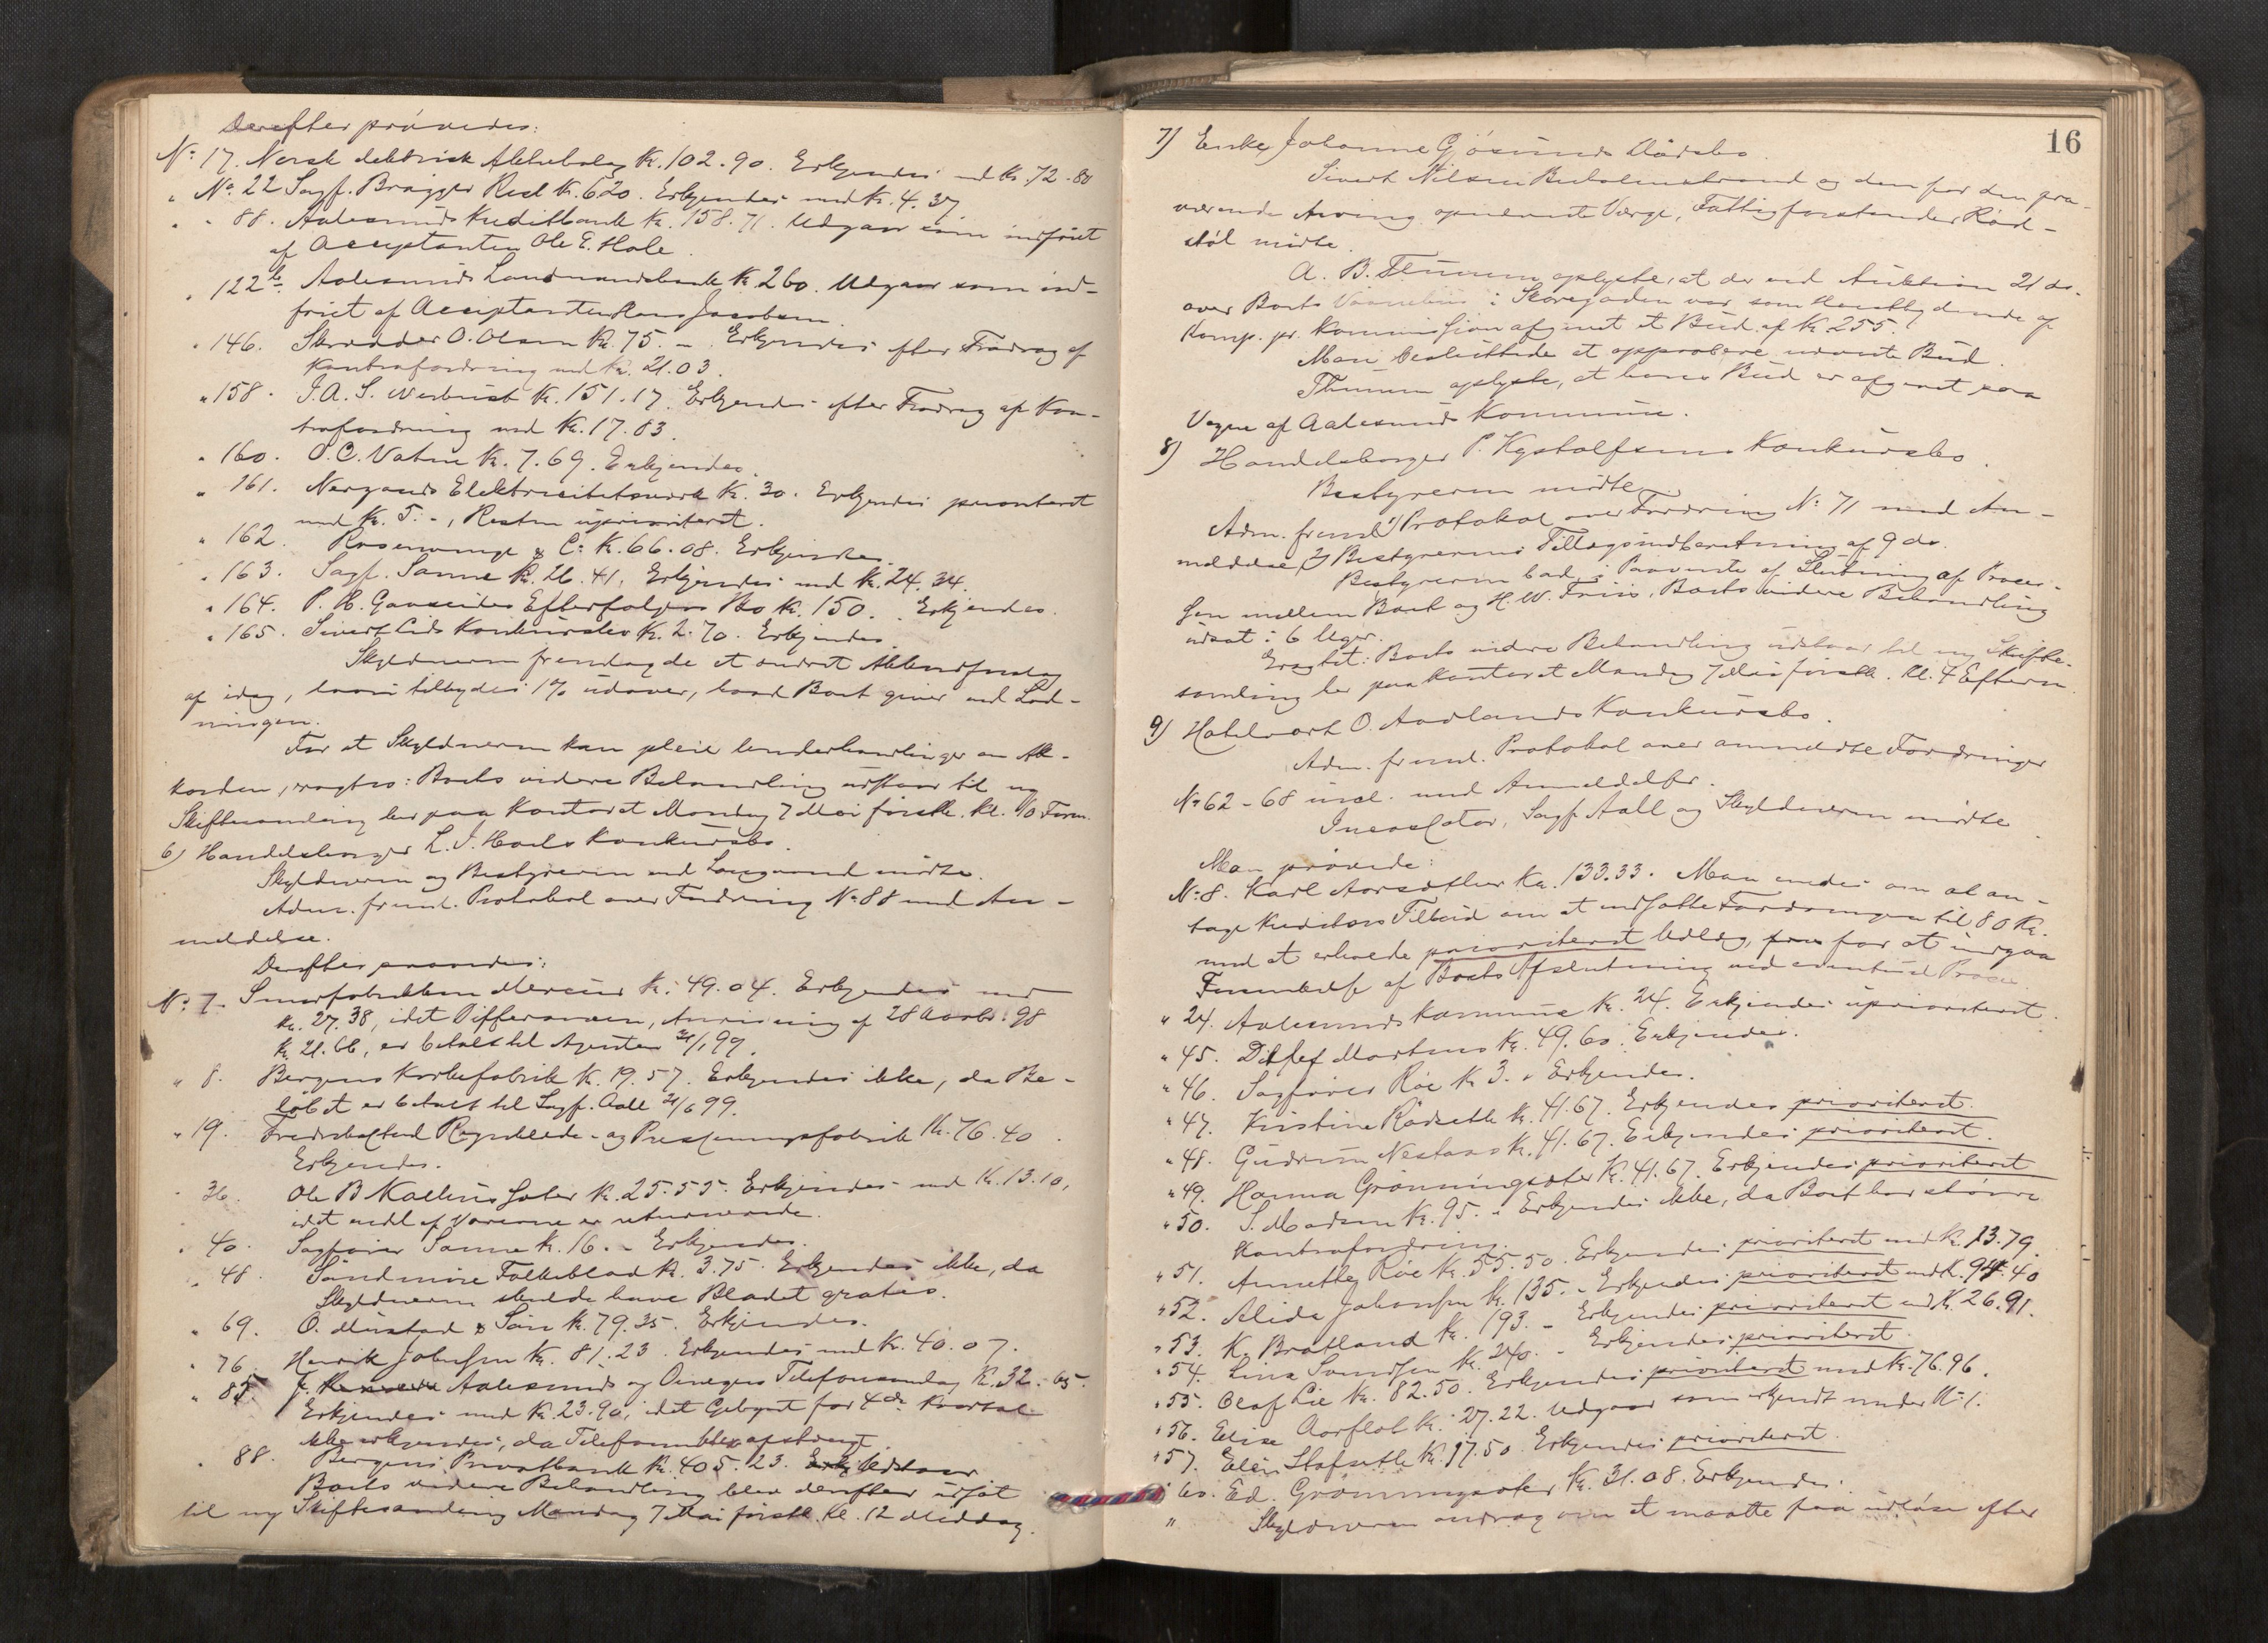 Derefter prøvedes:
No 17. Norsk elektrisk Aktiebolag Kr. 102.90. Erkjendes med Kr. 72.80
" No 22 Sagf. Brøgger Rest Kr. 620. Erkjendes med Kr. 4.37
" 88. Aalesunds Kreditbank Kr. 158.71. Udgaar som indfriet
af Acceptanten Ole E. Hole.
" 122 b Aalesunds Landmandsbank Kr 260. Udgaar som ind-
friet af Acceptanten Hans Jacobsen.
" 146. Skrædder O. Olsen Kr. 75. - Erkjendes efter Fradrag af
Kontrafordring med Kr. 21.03.
" 158. I. A. S. Kr. 151.17. Erkjendes efter Fradrag af Kon-
trafordring med Kr. 17.83.
" 160. O. C. Vatne Kr. 7.69. Erkjendes.
" 161. Elektricitetsverk Kr. 30. Erkjendes prioriteret
med Kr. 5. -, Resten uprioriteret.
" 162. Rosenvinge & Co Kr. 66.08. Erkjendes.
" 163. Sagf. Sanne Kr. 26.41. Erkjendes med Kr. 24.34.
" 164. P. H. Efterfølgers Bo Kr. 150. Erkjendes.
" 165. Sivert Lids Konkursbo Kr. 2.70. Erkjendes.
Skyldneren fremlagde et ændret Akkordforslag
af idag, hvori tilbydes 1% udover, hvad Boet giver ved Lod-
ningen.
For at Skyldneren kan pleie Underhandlinger om Ak-
korden, eragtes: Boets videre Behandling udstaar til ny
Skiftesamling her paa Kontoret Mandag 7 Mai førstk. Kl. 10 Form.
6) Handelsborger L. J. Konkursbo.
Skyldneren og Bestyreren ved mødte.
Adm. freml. Protokol over Fordring No 88 med An-
meldelse.
Derefter prøvedes:
No 7. Smørfabrikken Mercur Kr. 49.04. Erkjendes med
Kr. 27.38, idet Differansen, Anvisning af 28 98
Kr. 21.66, er betalt til Agenten 21/1 99.
" 8. Bergens Korkefabrik Kr. 19.57. Erkjendes ikke, da Be-
løbet er betalt til Sagf. Aall 21/6 99.
" 19. Fredrikstad og Presenningsfabrik Kr. 76.40.
Erkjendes.
" 36. Ole B Kr. 25.55. Erkjendes med Kr. 13.10,
idet endel af Varerne er returnerede.
" 40. Sagfører Sanne Kr. 16. - Erkjendes.
" 48. Søndmøre Folkeblad Kr. 3.75. Erkjendes ikke, da
Skyldneren skulde have Bladet gratis.
" 69. O. Mustad & Søn Kr. 79.35. Erkjendes.
" 76. Henrik Johnsen Kr. 81.23. Erkjendes med Kr. 40.07.
" 85. Aalesunds og Omegns Telefonanlæg Kr. 32.65.
Erkjendes med Kr. 23.90, idet Gebyret for 4de Kvartal
ikke erkjendes, da Telefonen blev afstængt.
" 88. Bergens Privatbank Kr. 405.23. Udstaar
Boets videre Behandling blev derefter udsat
til ny Skiftesamling Mandag 7 Mai førstk. Kl. 12 Middag.
16
7) Enke Johanne Gjøsunds Dødsbo.
Sivert Nilsen og den for den fra-
værende Arving opnævnte Værge, Fattigforstander Rød-
støl mødte.
A. B. Thunem oplyste, at der ved Auktion 21 ds.
over Boets i Storegaden var som Høistbydende af
Komp. pr. Kommission afgivet et Bud af Kr. 255.
Man besluttede at approbere nævnte Bud.
Thunem oplyste, at hans Bud er afgivet paa
Vegne af Aalesunds Kommune.
8) Handelsborger P. Konkursbo.
Bestyreren mødte.
Adm. freml. 1) Protokol over Fordring No 71 med An-
meldelse, 2) Bestyrerens Tillægsindberetning af 9 ds.
Bestyreren bad, i Paavente af Slutning af Proces-
sen mellem Boet og H. W. Friis, Boets videre Behandling
udsat i 6 Uger.
Eragtet: Boets videre Behandling udstaar til ny Skifte-
samling her paa Kontoret Mandag 7 Mai førstk. Kl. 4 Efterm.
9) Hotelvært O. Aadlands Konkursbo.
Adm. freml. Protokol over anmeldte Fordringer
No 62-68 incl. med Anmeldelser.
Incassator, Sagf. Aall og Skyldneren mødte.
Man prøvede:
No 8. Karl Aarsæther Kr. 133.33. Man enedes om at an-
tage Kreditors Tilbud om at nedsætte Fordringen til 80 Kr.
med at erholde prioriteret Udlæg, for at undgaa
af Boets Afslutning ved eventuel Proces.
" 24. Aalesunds Kommune Kr. 24. Erkjendes uprioriteret.
" 45. Ditlef Martens Kr. 49.60. Erkjendes.
" 46. Sagfører Røe Kr 3. - Erkjendes.
" 47. Kristine Rødseth Kr. 41.67. Erkjendes prioriteret.
" 48. Gudrun Nestaas Kr. 41.67. Erkjendes prioriteret.
" 49. Hanna Grønningsæter Kr. 41.67. Erkjendes prioriteret
" 50. S. Madsen Kr. 95. - Erkjendes ikke, da Boet har større
Kontrafordring.
" 51. Annette Røe Kr. 55.50. Erkjendes prioriteret med Kr. 13.79.
" 52. Alida Johansen Kr. 135. - Erkjendes prioriteret med Kr. 94.40
" 53. K. Bratland Kr. 193. - Erkjendes prioriteret med Kr. 26.91.
" 54. Lina Kr. 240. - Erkjendes prioriteret.
" 55. Olaf Lie Kr. 82.50. Erkjendes prioriteret med Kr. 76.96.
" 56. Elise Aarflot Kr. 27.22. Udgaar som erkjendt under No 1.
" 57. Elen Stafseth Kr. 17.50. Erkjendes prioriteret.
" 60. Ed. Grønningsæter Kr. 31.08. Erkjendes.
" Skyldneren androg om at maatte faa udløse efter